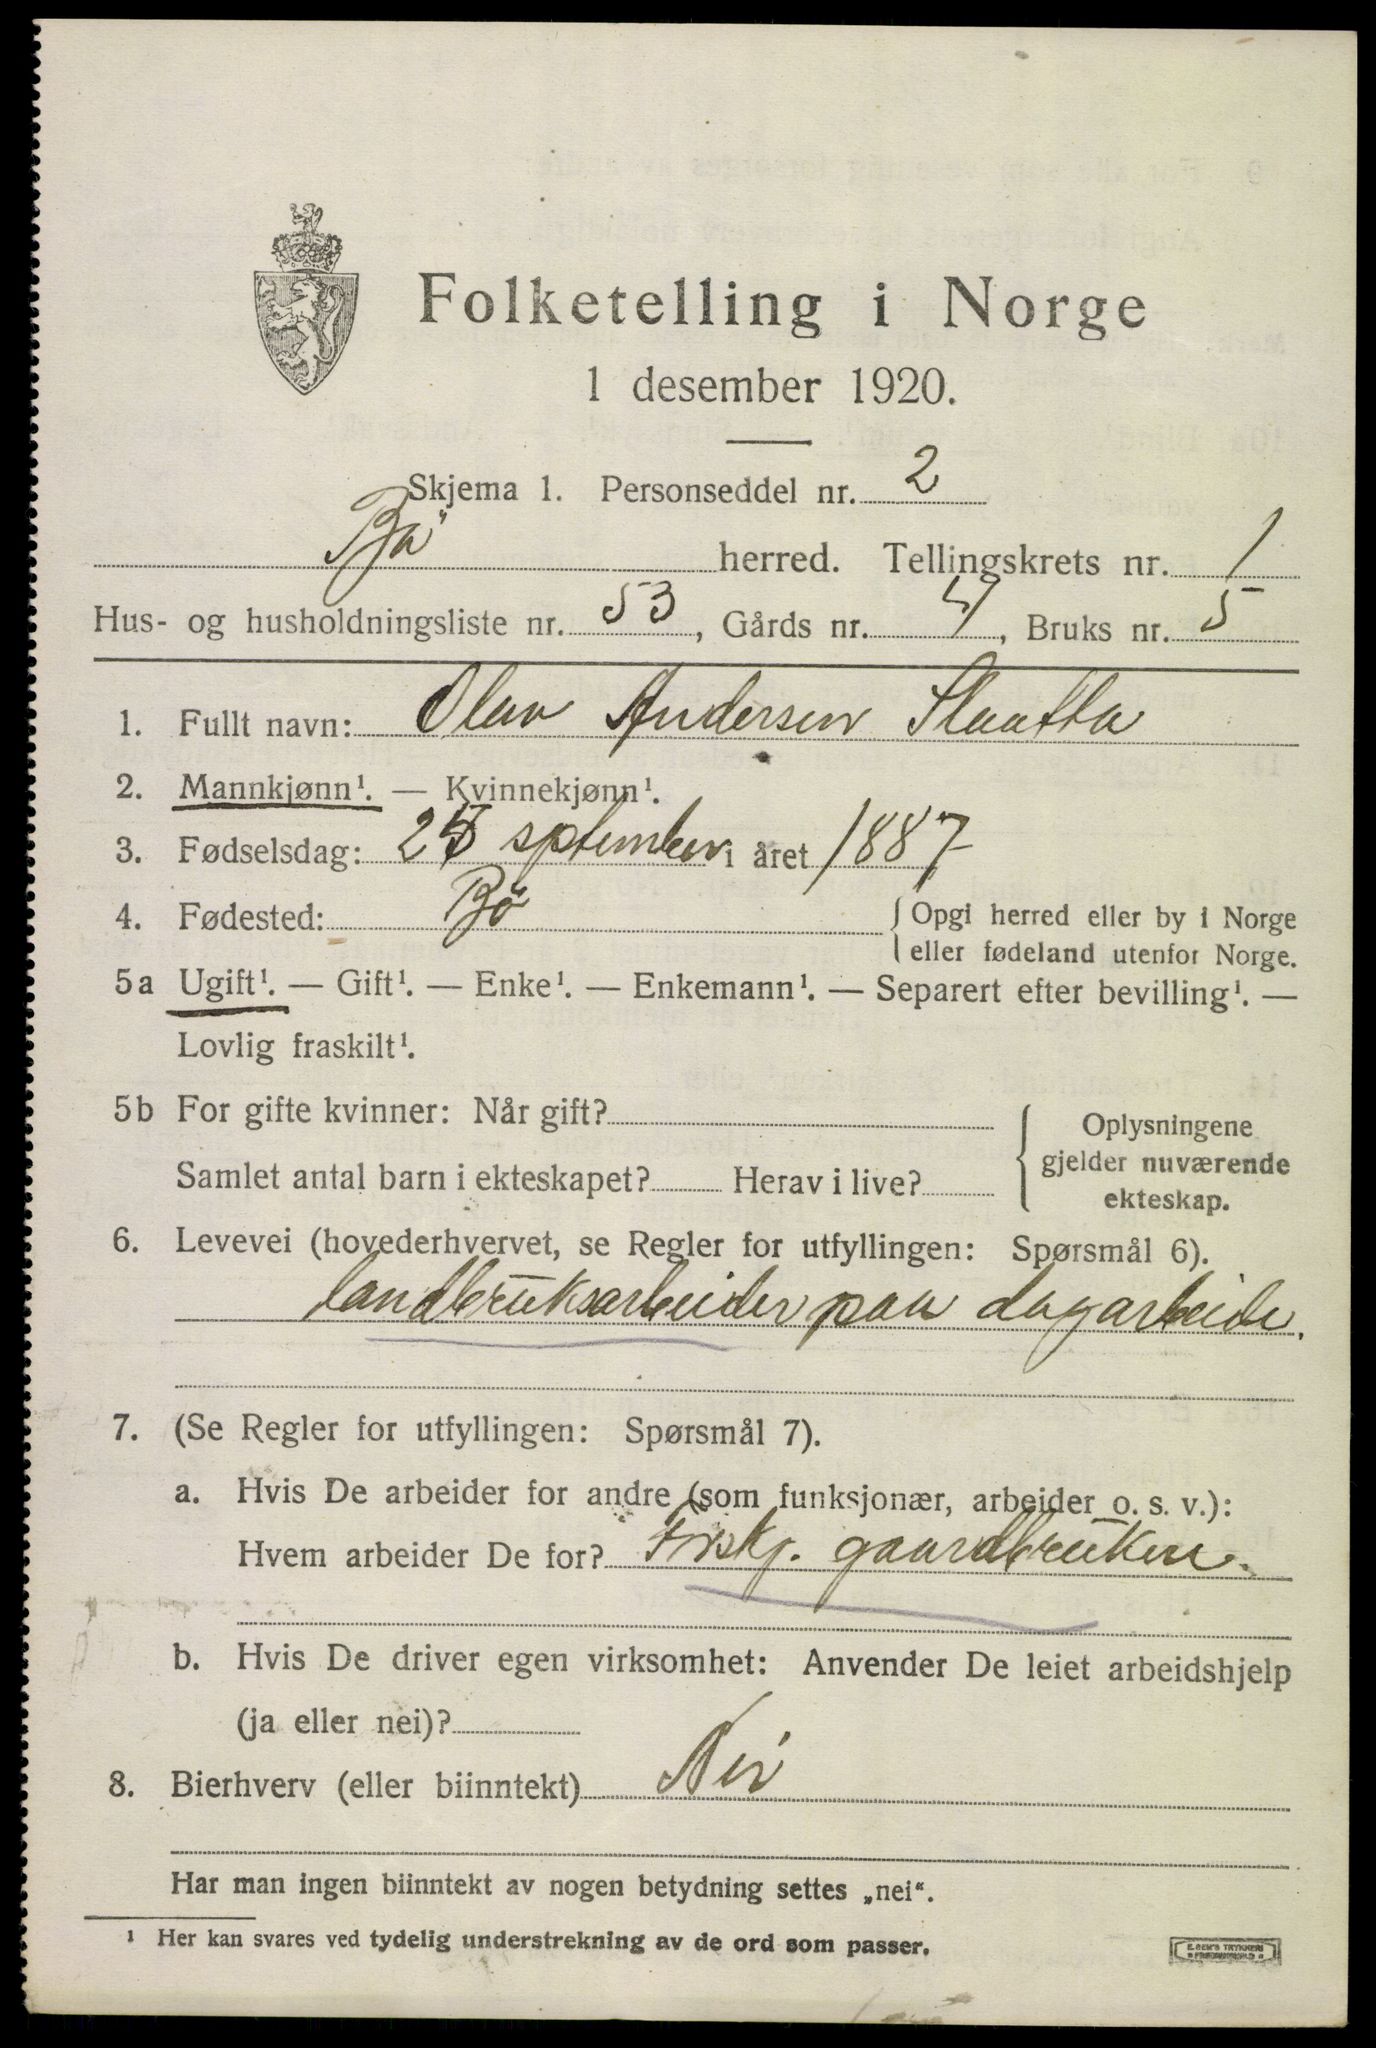 Folketelling i Norge
1 desember 1920.
Skjema 1. Personseddel nr. 2
Bø herred. Tellingskrets nr. 1
Hus- og husholdningsliste nr. 53, Gårds nr. 4, Bruks nr. 5
1. Fullt navn: Olav Andersen Slaatta
2. Mannkjønn¹. — Kvinnekjønn¹.
3. Fødselsdag: september i året 1887
4. Fødested: Bø {Opgi herred eller by i Norge
eller fødeland utenfor Norge.
5a Ugift¹. — Gift¹. — Enke¹. — Enkemann¹. — Separert efter bevilling¹. —
Lovlig fraskilt¹.
5b For gifte kvinner: Når gift?
Samlet antal barn i ekteskapet? Herav i live?
Oplysningene
gjelder nuværende
ekteskap.
6. Levevei (hovederhvervet, se Regler for utfyllingen: Spørsmål 6).
landbruksarbeider paa dagarbeide.
7. (Se Regler for utfyllingen: Spørsmål 7).
a. Hvis De arbeider for andre (som funksjonær, arbeider o. s. v.):
Hvem arbeider De for? Forskj. gaardbrukere.
b. Hvis De driver egen virksomhet: Anvender De leiet arbeidshjelp
(ja eller nei)?
8. Bierhverv (eller biinntekt) Nei
Har man ingen biinntekt av nogen betydning settes „nei“.
¹ Her kan svares ved tydelig understrekning av de ord som passer.